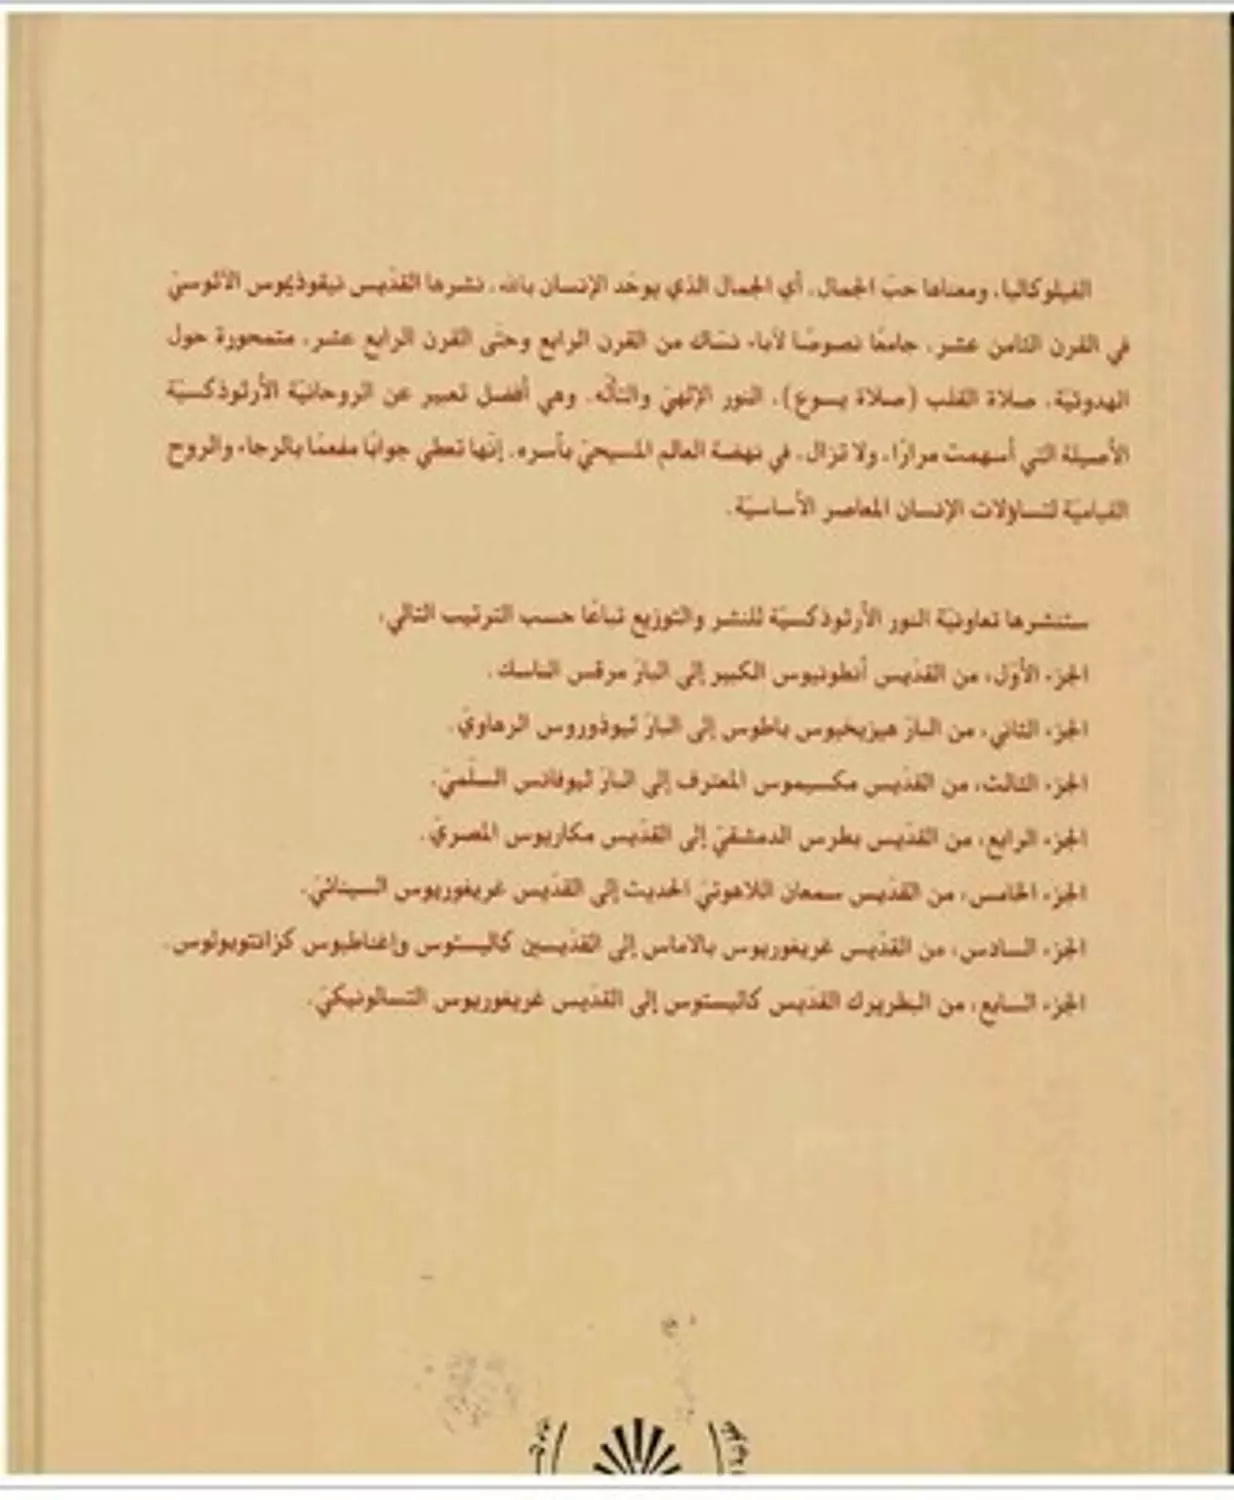 الفيلوكاليا، ومعناها حبّ الجمال، أي الجمال الذي يوحّد الإنسان بالله، نشرها القدّيس نيقوذيموس الآثوسيّ
في القرن الثامن عشر، جامعًا نصوصًا لآباء نسّاك من القرن الرابع وحتّى القرن الرابع عشر، متمحورة حول
الهدوئيّة، صلاة القلب (صلاة يسوع)، النور الإلهيّ والتألّه. وهي أفضل تعبير عن الروحانيّة الأرثوذكسيّة
الأصيلة التي أسهمت مرارًا، ولا تزال، في نهضة العالم المسيحيّ بأسره. إنّها تعطي جوابًا مفعمًا بالرجاء والروح
القياميّة لتساؤلات الإنسان المعاصر الأساسيّة.
ستنشرها تعاونيّة النور الأرثوذكسيّة للنشر والتوزيع تباعًا حسب الترتيب التالي:
الجزء الأوّل: من القدّيس أنطونيوس الكبير إلى البارّ مرقس الناسك.
الجزء الثاني: من البارّ هيزيخيوس باطوس إلى البارّ ثيوذوروس الرهاويّ.
الجزء الثالث: من القدّيس مكسيموس المعترف إلى البارّ ثيوفانس السلّميّ.
الجزء الرابع: من القدّيس بطرس الدمشقيّ إلى القدّيس مكاريوس المصريّ.
الجزء الخامس: من القدّيس سمعان اللاهوتيّ الحديث إلى القدّيس غريغوريوس السينائيّ.
الجزء السادس: من القدّيس غريغوريوس بالاماس إلى القدّيسين كاليستوس وإغناطيوس كزانثوبولوس.
الجزء السابع: من البطريرك القدّيس كاليستوس إلى القدّيس غريغوريوس التسالونيكيّ.